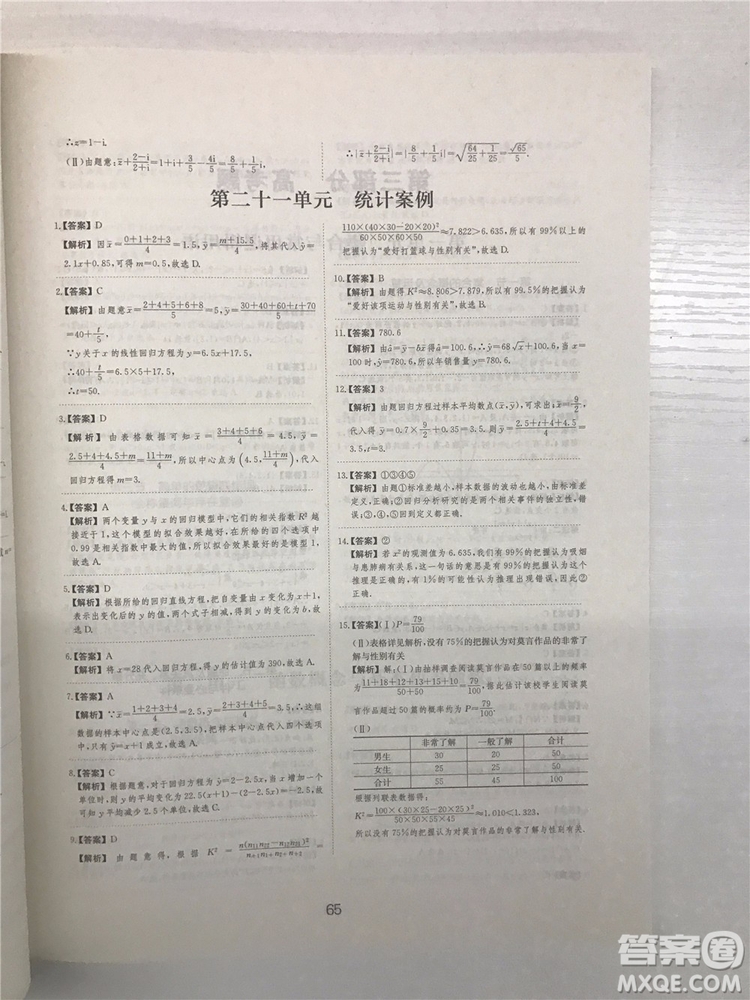 ∴z=1-i.
(Ⅱ)由题意:z̄+(2-i)/(2+i)=1+i+3/5-4i/5=8/5+1/5i.
∴|z̄+(2-i)/(2+i)|=|8/5+1/5i|=√(64/25+1/25)=√65/5.
第二十一单元 统计案例
1.【答案】D
【解析】因x̄=(0+1+2+3)/4=1.5,ȳ=(m+15.5)/4,将其代入ŷ=
2.1x+0.85,可得m=0.5,故选D.
2.【答案】C
【解析】由题意x̄=(2+4+5+6+8)/5=5,ȳ=(30+40+60+t+70)/5
=40+t/5,
∵y关于x的线性回归方程为ŷ=6.5x+17.5,
∴40+t/5=6.5×5+17.5,
∴t=50.
3.【答案】D
【解析】由表格数据可知x̄=(3+4+5+6)/4=4.5,ȳ=
(2.5+4+4.5+m)/4=(11+m)/4,所以中心点为(4.5,(11+m)/4),代入
回归方程得m=3.
4.【答案】A
【解析】两个变量y与x的回归模型中,它们的相关指数R²越
接近于1,这个模型的拟合效果越好,在所给的四个选项中
0.99是相关指数中最大的值,所以拟合效果最好的是模型1.
故选A.
5.【答案】D
【解析】根据所给的回归直线方程,把自变量由x变化为x+1,
表示出变化后的y的值,两个式子相减,得到y的变化,故
选D.
6.【答案】A
【解析】将x=28代入回归方程,得y的估计值为390,故选A.
7.【答案】A
【解析】∵x̄=(1+2+3+4)/4=2.5,ȳ=(2+3+4+5)/4=3.5,∴这组
数据的样本中心点是(2.5,3.5),把样本中心点代入四个选项
中,只有ŷ=x+1成立,故选A.
8.【答案】C
【解析】根据题意,对于回归方程为ŷ=2-2.5x,当x增加一个
单位时,则y的平均变化为22.5(x+1)-(2-2.5x)=-2.5,则y
平均减少2.5个单位,故选C.
9.【答案】D
【解析】由题意得,根据K²=n(n₁₁n₂₂-n₁₂n₂₁)²/(n₊₁n₊₂n₊₁n₊₂)=
110×(40×30-20×20)²/(60×50×60×50)≈7.822>6.635,所以有99%以上的
把握认为“爱好打篮球与性别有关”,故选D.
10.【答案】B
【解析】由题得K²≈8.806>7.879,所以有99.5%的把握认为
“爱好该项运动与性别有关”.故选B.
11.【答案】780.6
【解析】由â=ȳ-b̂x̄得â=100.6,∴ŷ=68√x+100.6,当x=
100时,ŷ=780.6,所以年销售量ŷ=780.6.
12.【答案】3
【解析】由题回归方程过样本平均数点(x̄,ȳ),可求出,x̄=9/2,
代入得ȳ=0.7×9/2+0.35=3.5,则ȳ=(2.5+t+4+4.5)/4=
3.5,t=3.
13.【答案】①③④⑤
【解析】①标准差越小,样本数据的波动也越小,由标准差的
定义,正确;②回归分析研究的是两个相关事件的独立性,错
误;③正确,④正确,⑤正确.
14.【答案】②
【解析】若x²的观测值为6.635,我们有99%的把握认为吸烟
与患肺病有关系,这一句话的意思是有99%的把握认为这个
推理是正确的,有1%的可能性认为推理出现错误,所以
选②.
15.【答案】(Ⅰ)P=79/100
(Ⅱ)表格详见解析,没有75%的把握认为对莫言作品的非常了
解与性别有关
【解析】解:(Ⅰ)由抽样调查阅读莫言作品在50篇以上的频率为
(11+18+12+13+15+10)/(50+50)=79/100,据此估计该校学生阅读莫
言作品超过50篇的概率为P=79/100.
(Ⅱ)
非常了解 一般了解 合计
男生 30 20 50
女生 25 25 50
合计 55 45 100
根据列联表数据得:
K²=100×(30×25-20×25)²/(50×50×55×45)≈1.010<1.323,
所以没有75%的把握认为对莫言作品的非常了解与性别有关.
65
答案圈
MXQE.COM